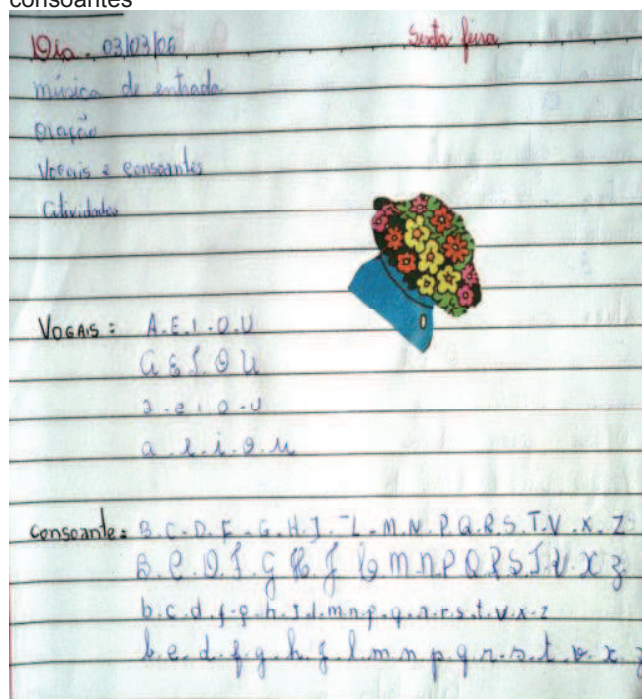 consoantes
Dia. 03/03/06 Sexta feira
música de entrada
oração
Vogais e consoantes
Atividades
Vogais: A.E.I.O.U
A E I O U
a.e.i.o.u
a.e.i.o.u
consoante: B.C.D.F.G.H.J.L.M.N.P.Q.R.S.T.V.X.Z
B.C.D.F.G H.J L M N.P Q R S T.V X Z
b.c.d.f.g.h.j.l.m.n.p.q.r.s.t.v.x.z
b.c.d.f.g.h.j.l.m.n p q r.s.t.v.x.z